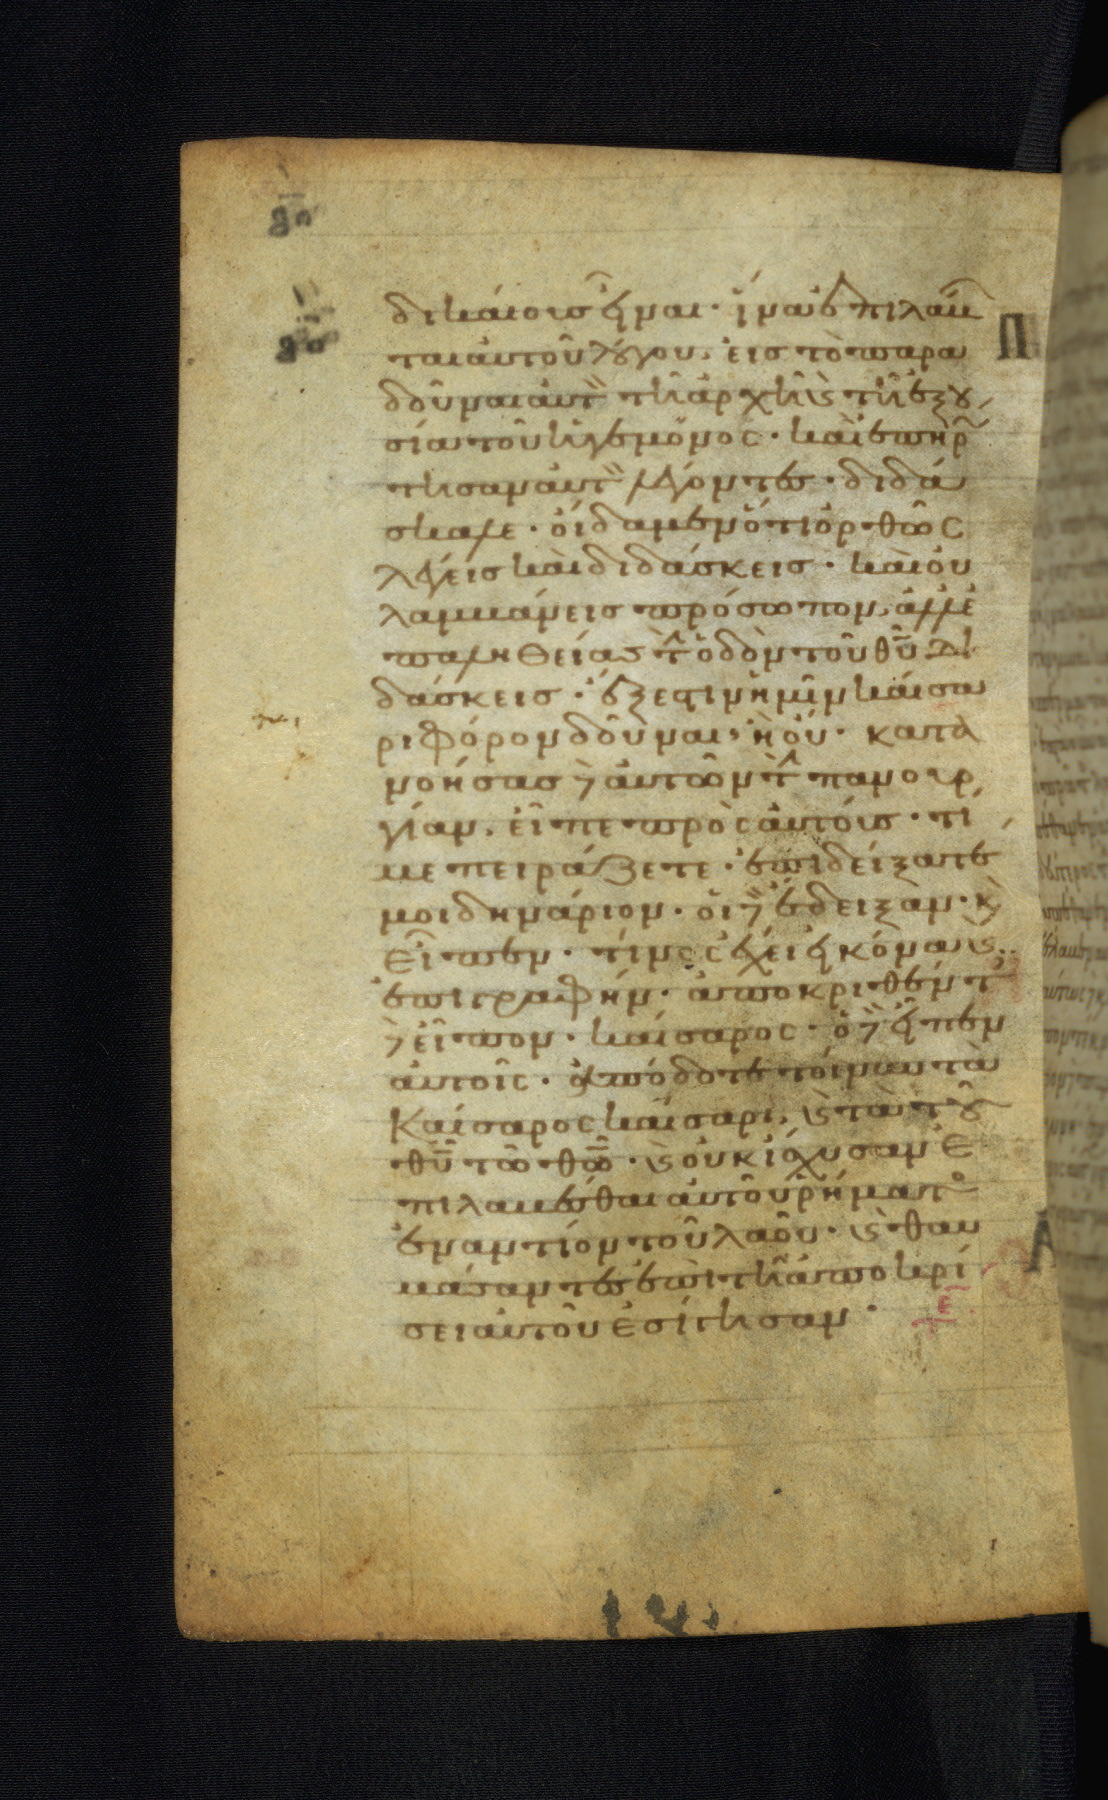 δικαίους εἶναι· ἵνα ἐπιλάβων
ται αὐτοῦ λόγου, εἰς τὸ παρα
δοῦναι αὐτὸν τῆ ἀρχῆ ϛ τῆ ἐξου
σία τοῦ ἡγεμόνος· καὶ ἐπηρώ
τησαν αὐτὸν λέγοντες· διδά
σκαλε· οἴδαμεν ὅτι ὀρθῶς
λέγεις καὶ διδάσκεις· καὶ οὐ
λαμβάνεις πρόσωπον, ἀλλ' ἐ
π' ἀληθείας τὴν ὁδὸν τοῦ θῦ δι
δάσκεις· ἔξεστιν ἡμῖν καίσα
ρι φόρον δοῦναι, ἢ οὔ· κατα
νοήσας δὲ αὐτῶν τὴν πανουρ
γίαν, εἶπε πρὸς αὐτούς· τί
με πειράζετε· ἐπιδείξατέ
μοι δηνάριον· οἱ δὲ ἔδειξαν· κ
εἶπεν· τίνος ἔχει εἰκόνα ϛ
ἐπιγραφήν· ἀποκριθέντες
δὲ εἶπον· καίσαρος· ὁ δὲ εἶπεν
αὐτοῖς· ἀπόδοτε τοίνυν τὰ
καίσαρος καίσαρι, ϛ τὰ τοῦ
θῦ τῶ θῶ· ϛ οὐκ ἴσχυσαν ἐ
πιλαβέσθαι αὐτοῦ ῥήματος
ἐναντίον τοῦ λαοῦ· ϛ θαυ
μάσαντες ἐπὶ τῆ ἀποκρί
σει αὐτοῦ ἐσίγησαν·